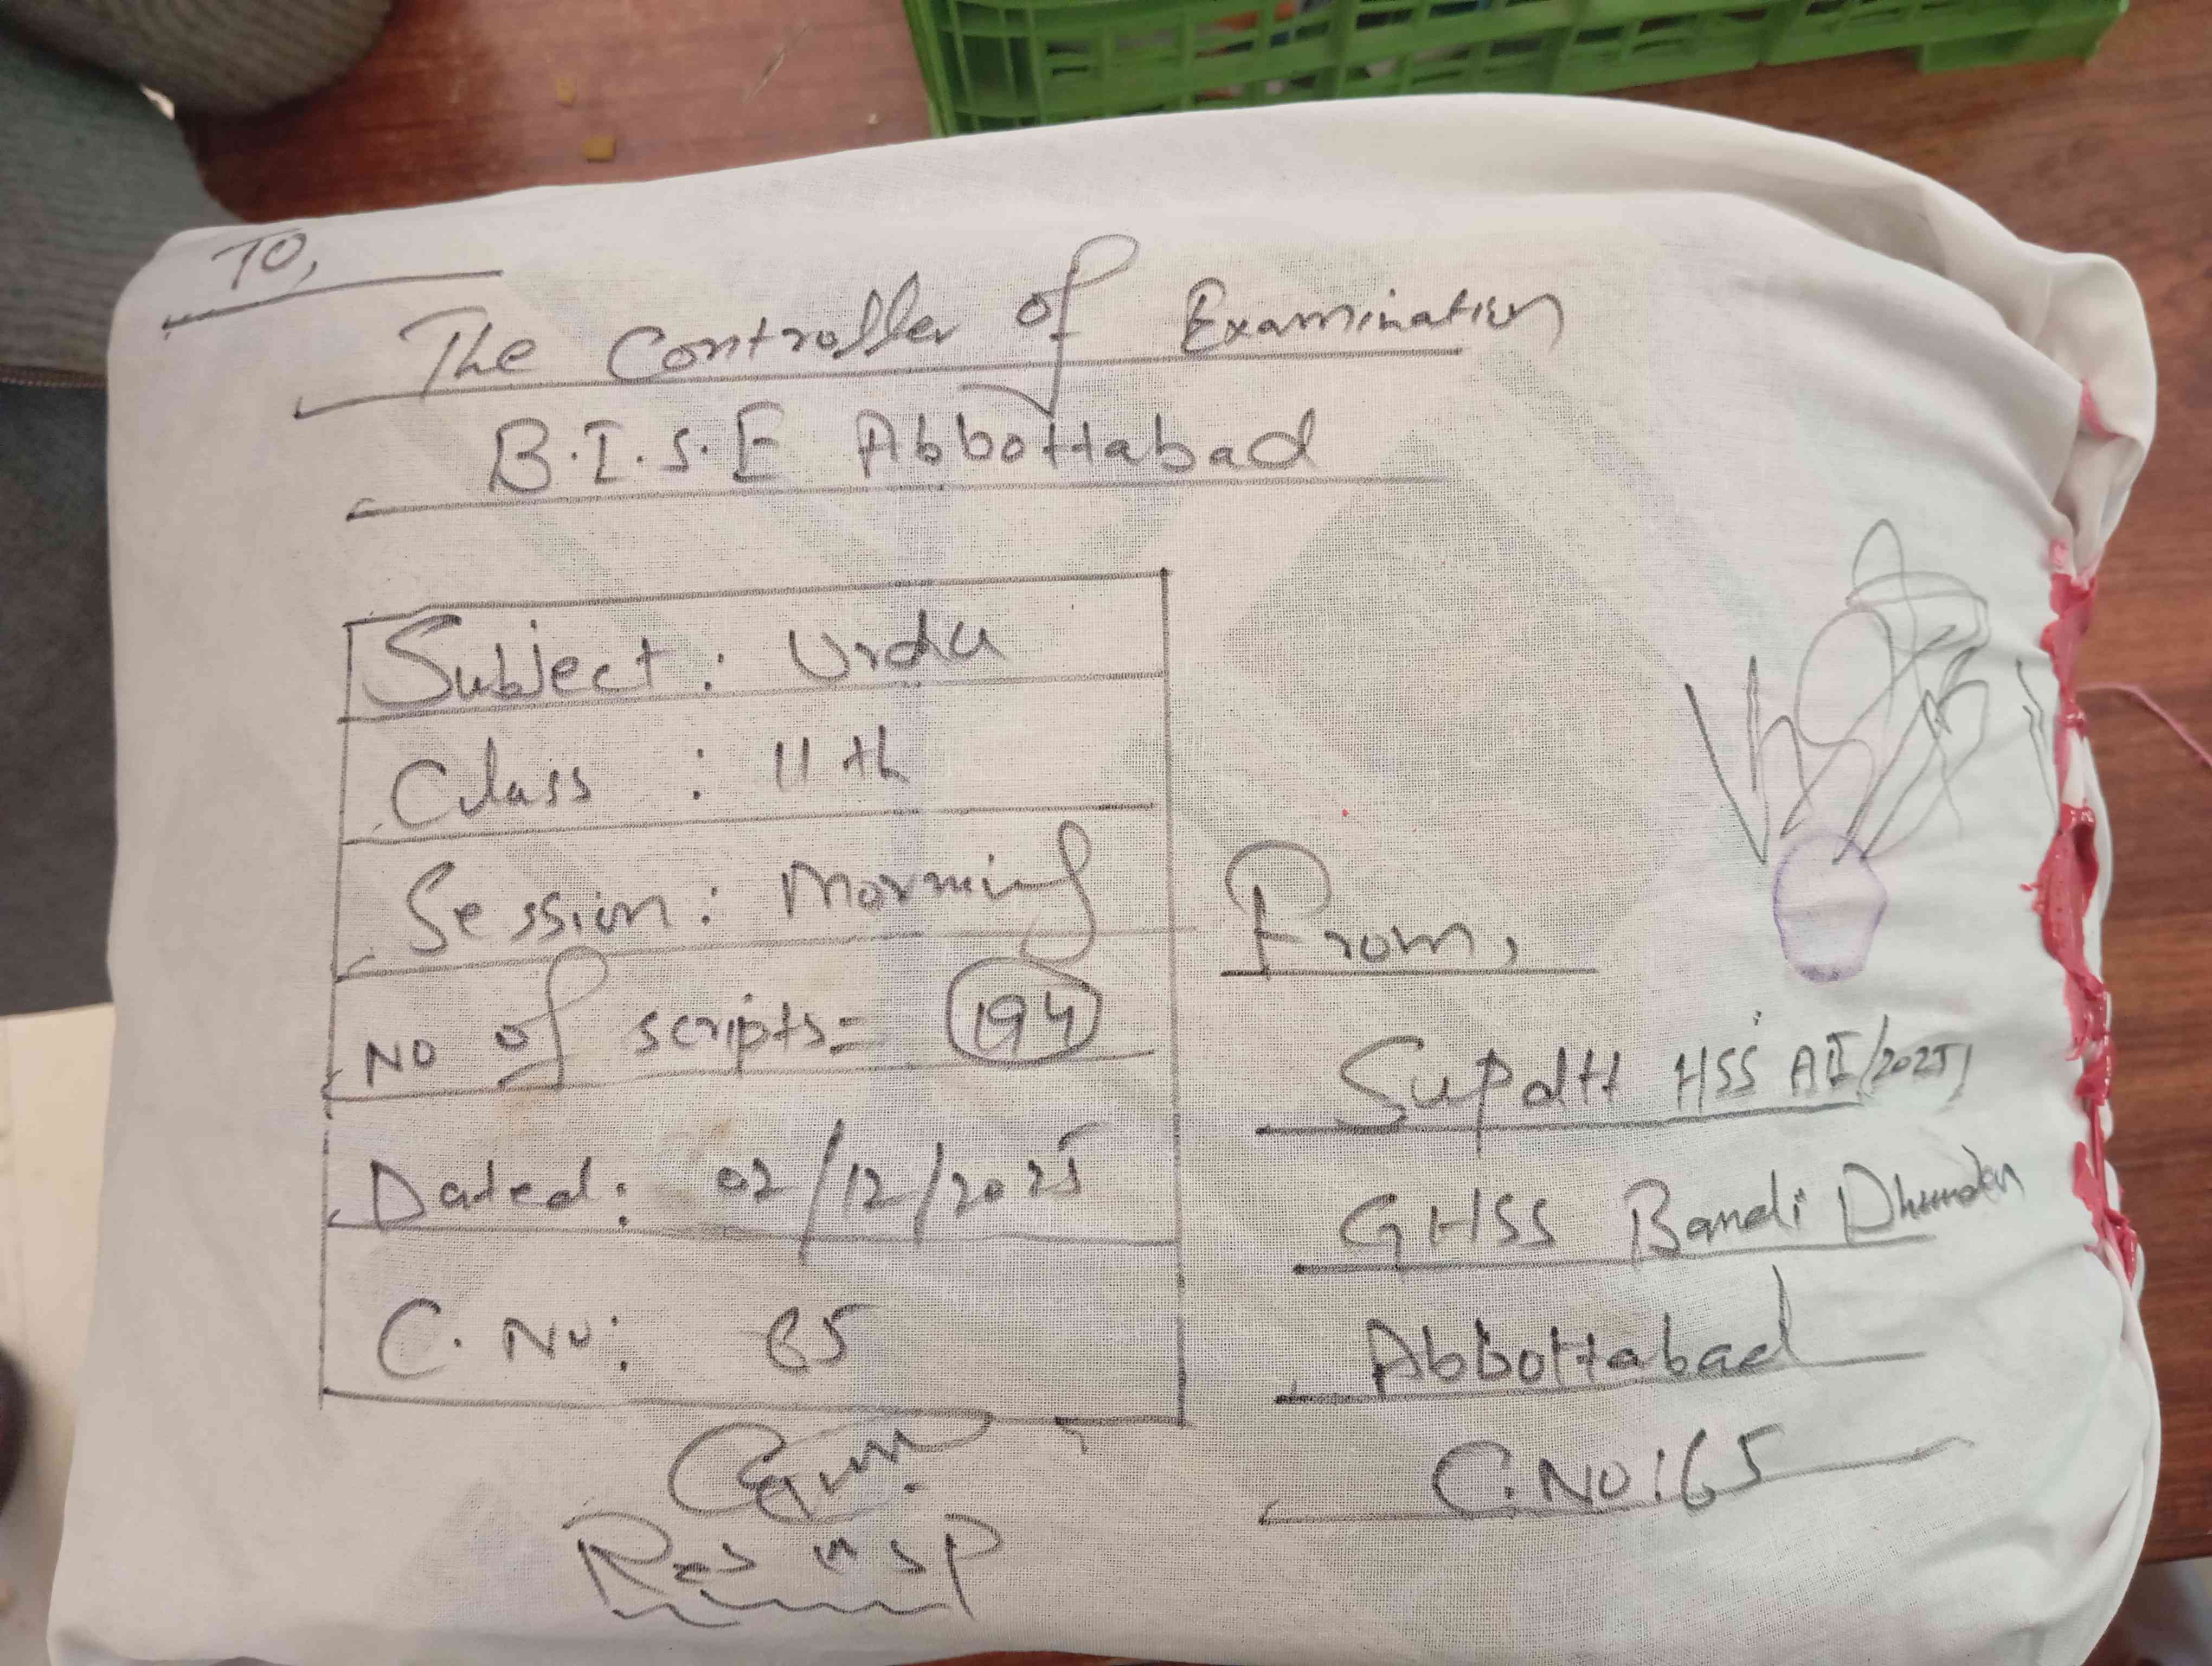 To,
The Controller of Examination
B.I.S.E Abbottabad
Subject: Urdu
Class : 11th
Session: Morning
No of scripts= 194
Dated: 02/12/2025
C. No: 65
From,
Supdtt HSS AII/2025
GHSS Bandi Dhundan
Abbottabad
C.No:65